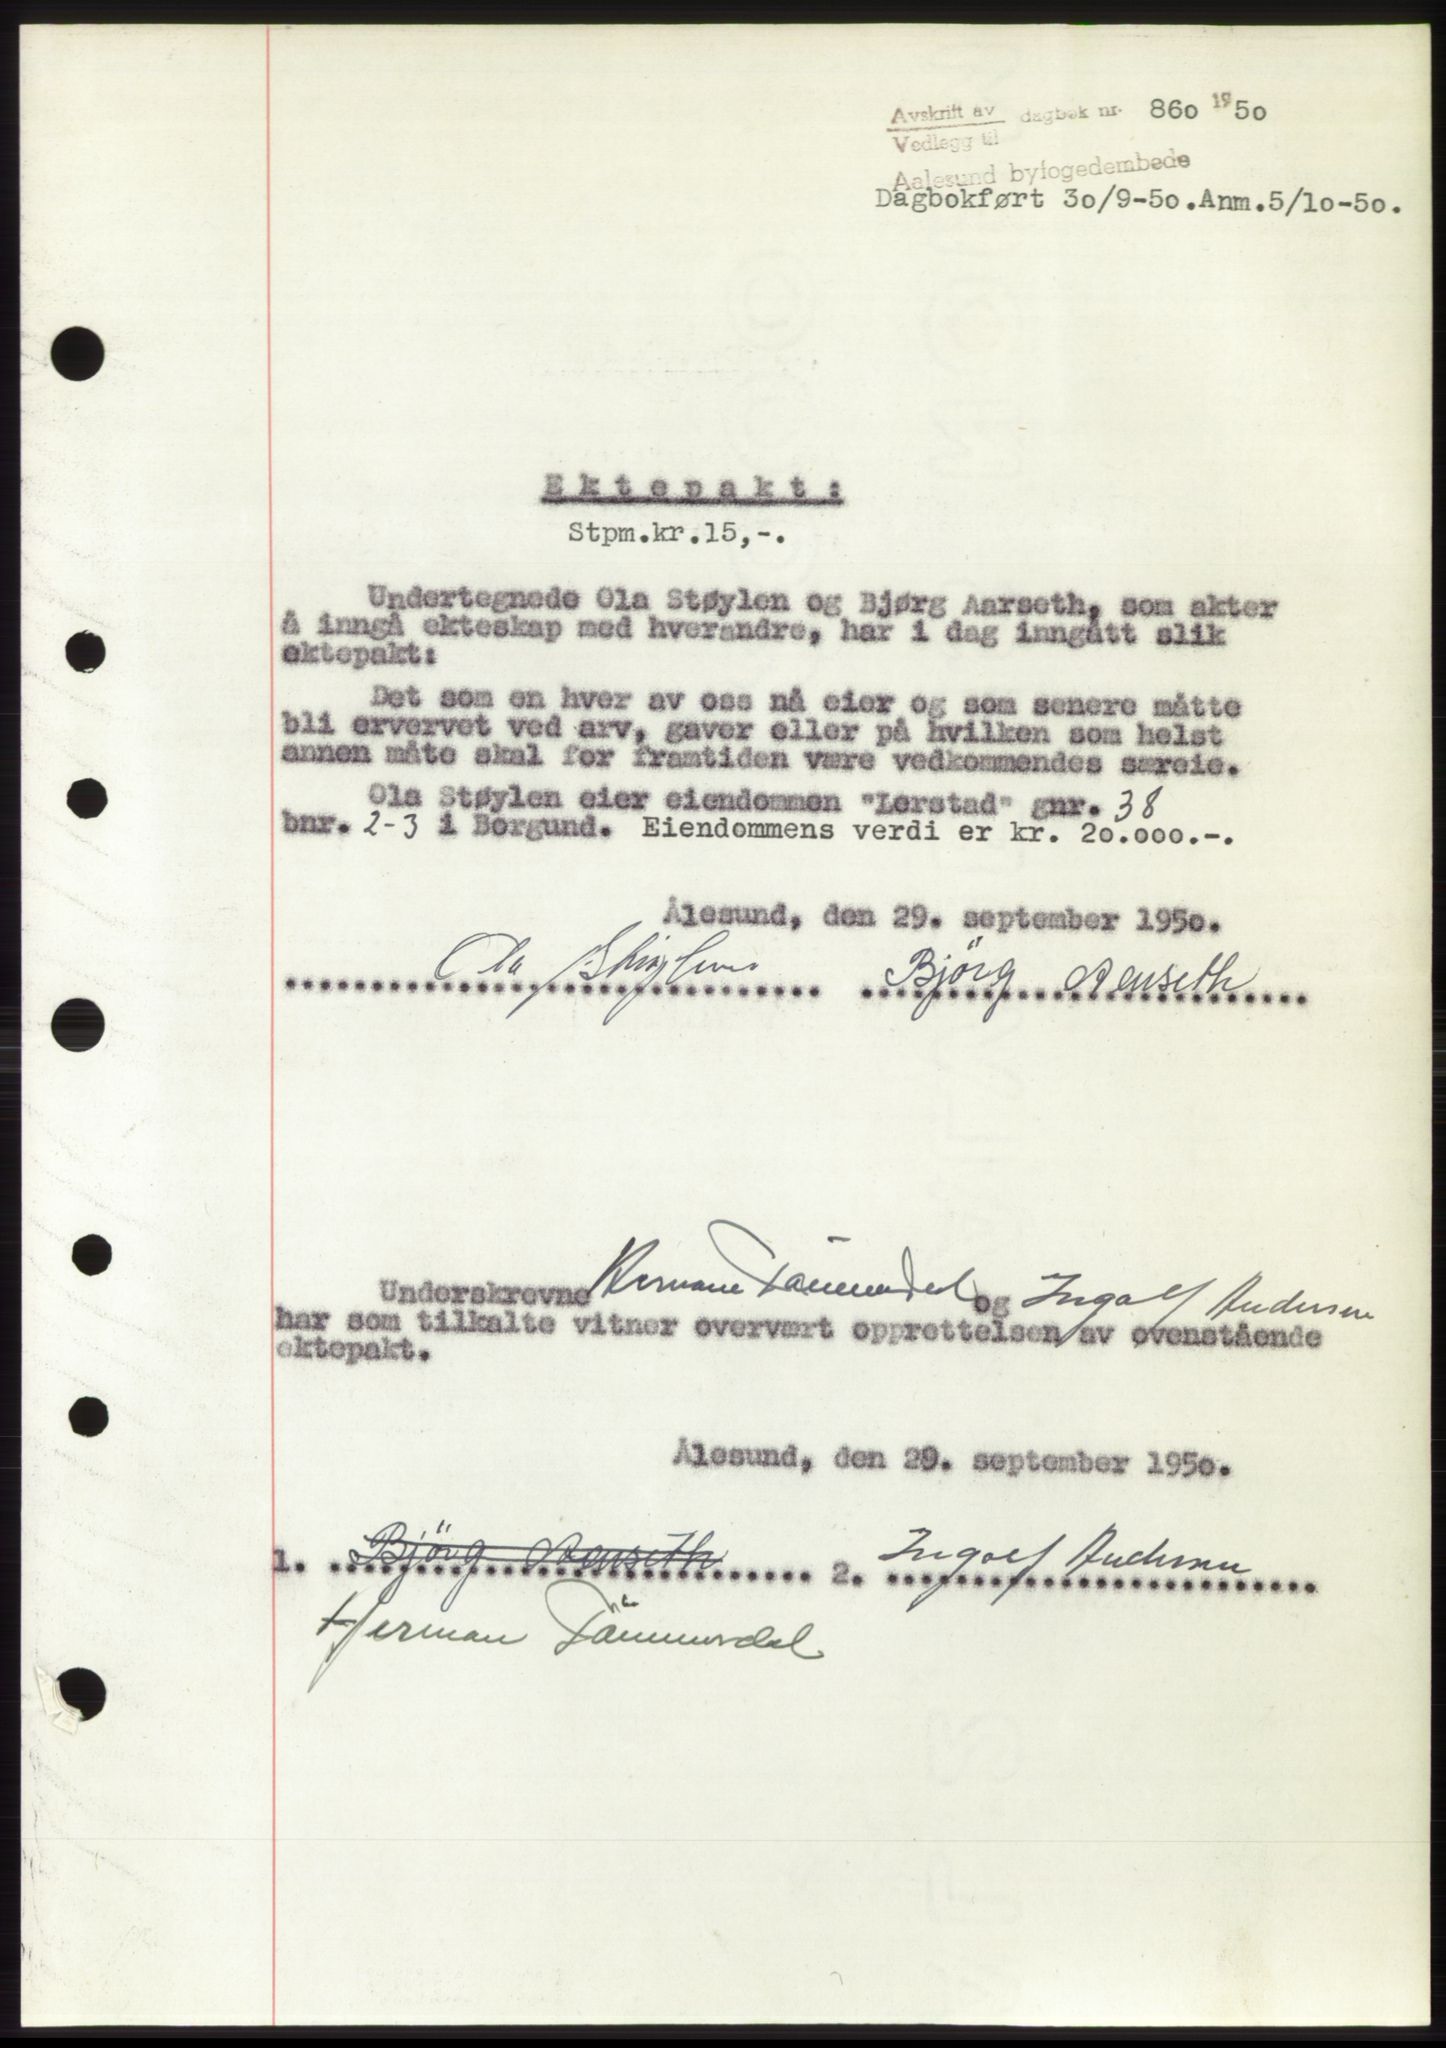 Avskrift av dagbok nr. 860 1950
Vedlegg til
Aalesund byfogedembede
Dagbokført 30/9-50.Anm.5/10-50.
Ektepakt:
Stpm.kr.15,-.
Undertegnede Ola Støylen og Bjørg Aarseth, som akter
å inngå ekteskap med hverandre, har i dag inngått slik
ektepakt:
Det som en hver av oss nå eier og som senere måtte
bli ervervet ved arv, gaver eller på hvilken som helst
annen måte skal for framtiden være vedkommendes særeie.
Ola Støylen eier eiendommen "Lerstad" gnr. 38
bnr. 2-3 i Borgund. Eiendommens verdi er kr. 20.000.-.
Ålesund, den 29. september 1950.
Ola Støylen Björg Aarseth
Underskrevne Herman Tömmerdal og Ingolf Andersen
har som tilkalte vitner overvært opprettelsen av ovenstående
ektepakt.
Ålesund, den 29. september 1950.
1. Björg Aarseth 2. Ingolf Andersen
Herman Tömmerdal